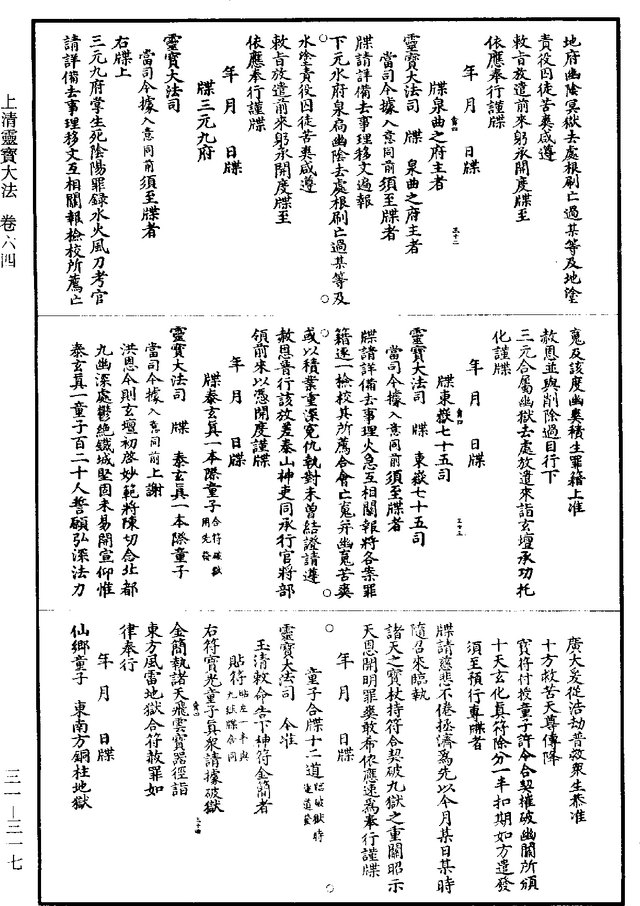 上清靈寶大法 卷六四
地府幽陰冥獄去處根刷亡過某等及地塗
責役囚徒苦爽咸遵
敕旨放遣前來躬承開度牒至
依應奉行謹牒
年 月 日牒
牒泉曲之府主者
靈寶大法司 牒 泉曲之府主者
當司今據入意同前須至牒者
牒請詳備去事理移文遍報
下元水府泉扃幽陰去處根刷亡過某等及
水塗責役囚徒苦爽咸遵
敕旨放遣前來躬承開度牒至
依應奉行謹牒
年 月 日牒
牒三元九府
靈寶大法司
當司今據入意同前須至牒者
右牒上
三元九府掌生死陰陽罪錄水火風刀考官
請詳備去事理移文互相關報檢校所薦亡
魂及該度幽爽積生罪籍上准
赦恩並與削除過目行下
三元合屬幽獄去處放遣來詣玄壇承功托
化謹牒
年 月 日牒
牒東嶽七十五司
靈寶大法司 牒 東嶽七十五司
當司今據入意同前須至牒者
牒請詳備去事理火急互相關報將各案罪
籍逐一檢校其所薦合會亡魂并幽魂苦爽
或以積業重深冤仇執對未曾結證請遵
赦恩普行該放差泰山神吏同承行官將部
領前來以憑開度謹牒
年 月 日牒
牒泰玄真一本際童子合符破獄用先發
靈寶大法司 牒 泰玄真一本際童子
當司今據入意同前上謝
洪恩今則玄壇初啓妙範將陳切念北都
九幽深處鬱絕鐵城堅固未易開宣仰惟
泰玄真一童子百二十人誓願弘深法力
廣大爰從浩劫普救衆生恭准
十方救苦天尊傳降
寶符付授童子許令合契摧破幽關所頒
十天玄化真符除分一半扣期如方遣發
須至預行專牒者
牒請慈悲不倦拯濟爲先以今月某日某時
隨召來臨執
諸天之寶杖持符合契破九獄之重關昭示
天恩開明罪爽敢希依應速爲奉行謹牒
年 月 日牒
童子合牒十二道臨破獄時逐道發
靈寶大法司 今准
玉清敕命告下神符金簡者
貼符貼左一半與九獄牒合同
右符寶光童子真衆請據破獄
金簡執諸天飛雲寶器徑詣
東方風雷地獄合符赦罪如
律奉行
年 月 日牒
仙鄉童子 東南方銅柱地獄
三一—三一七